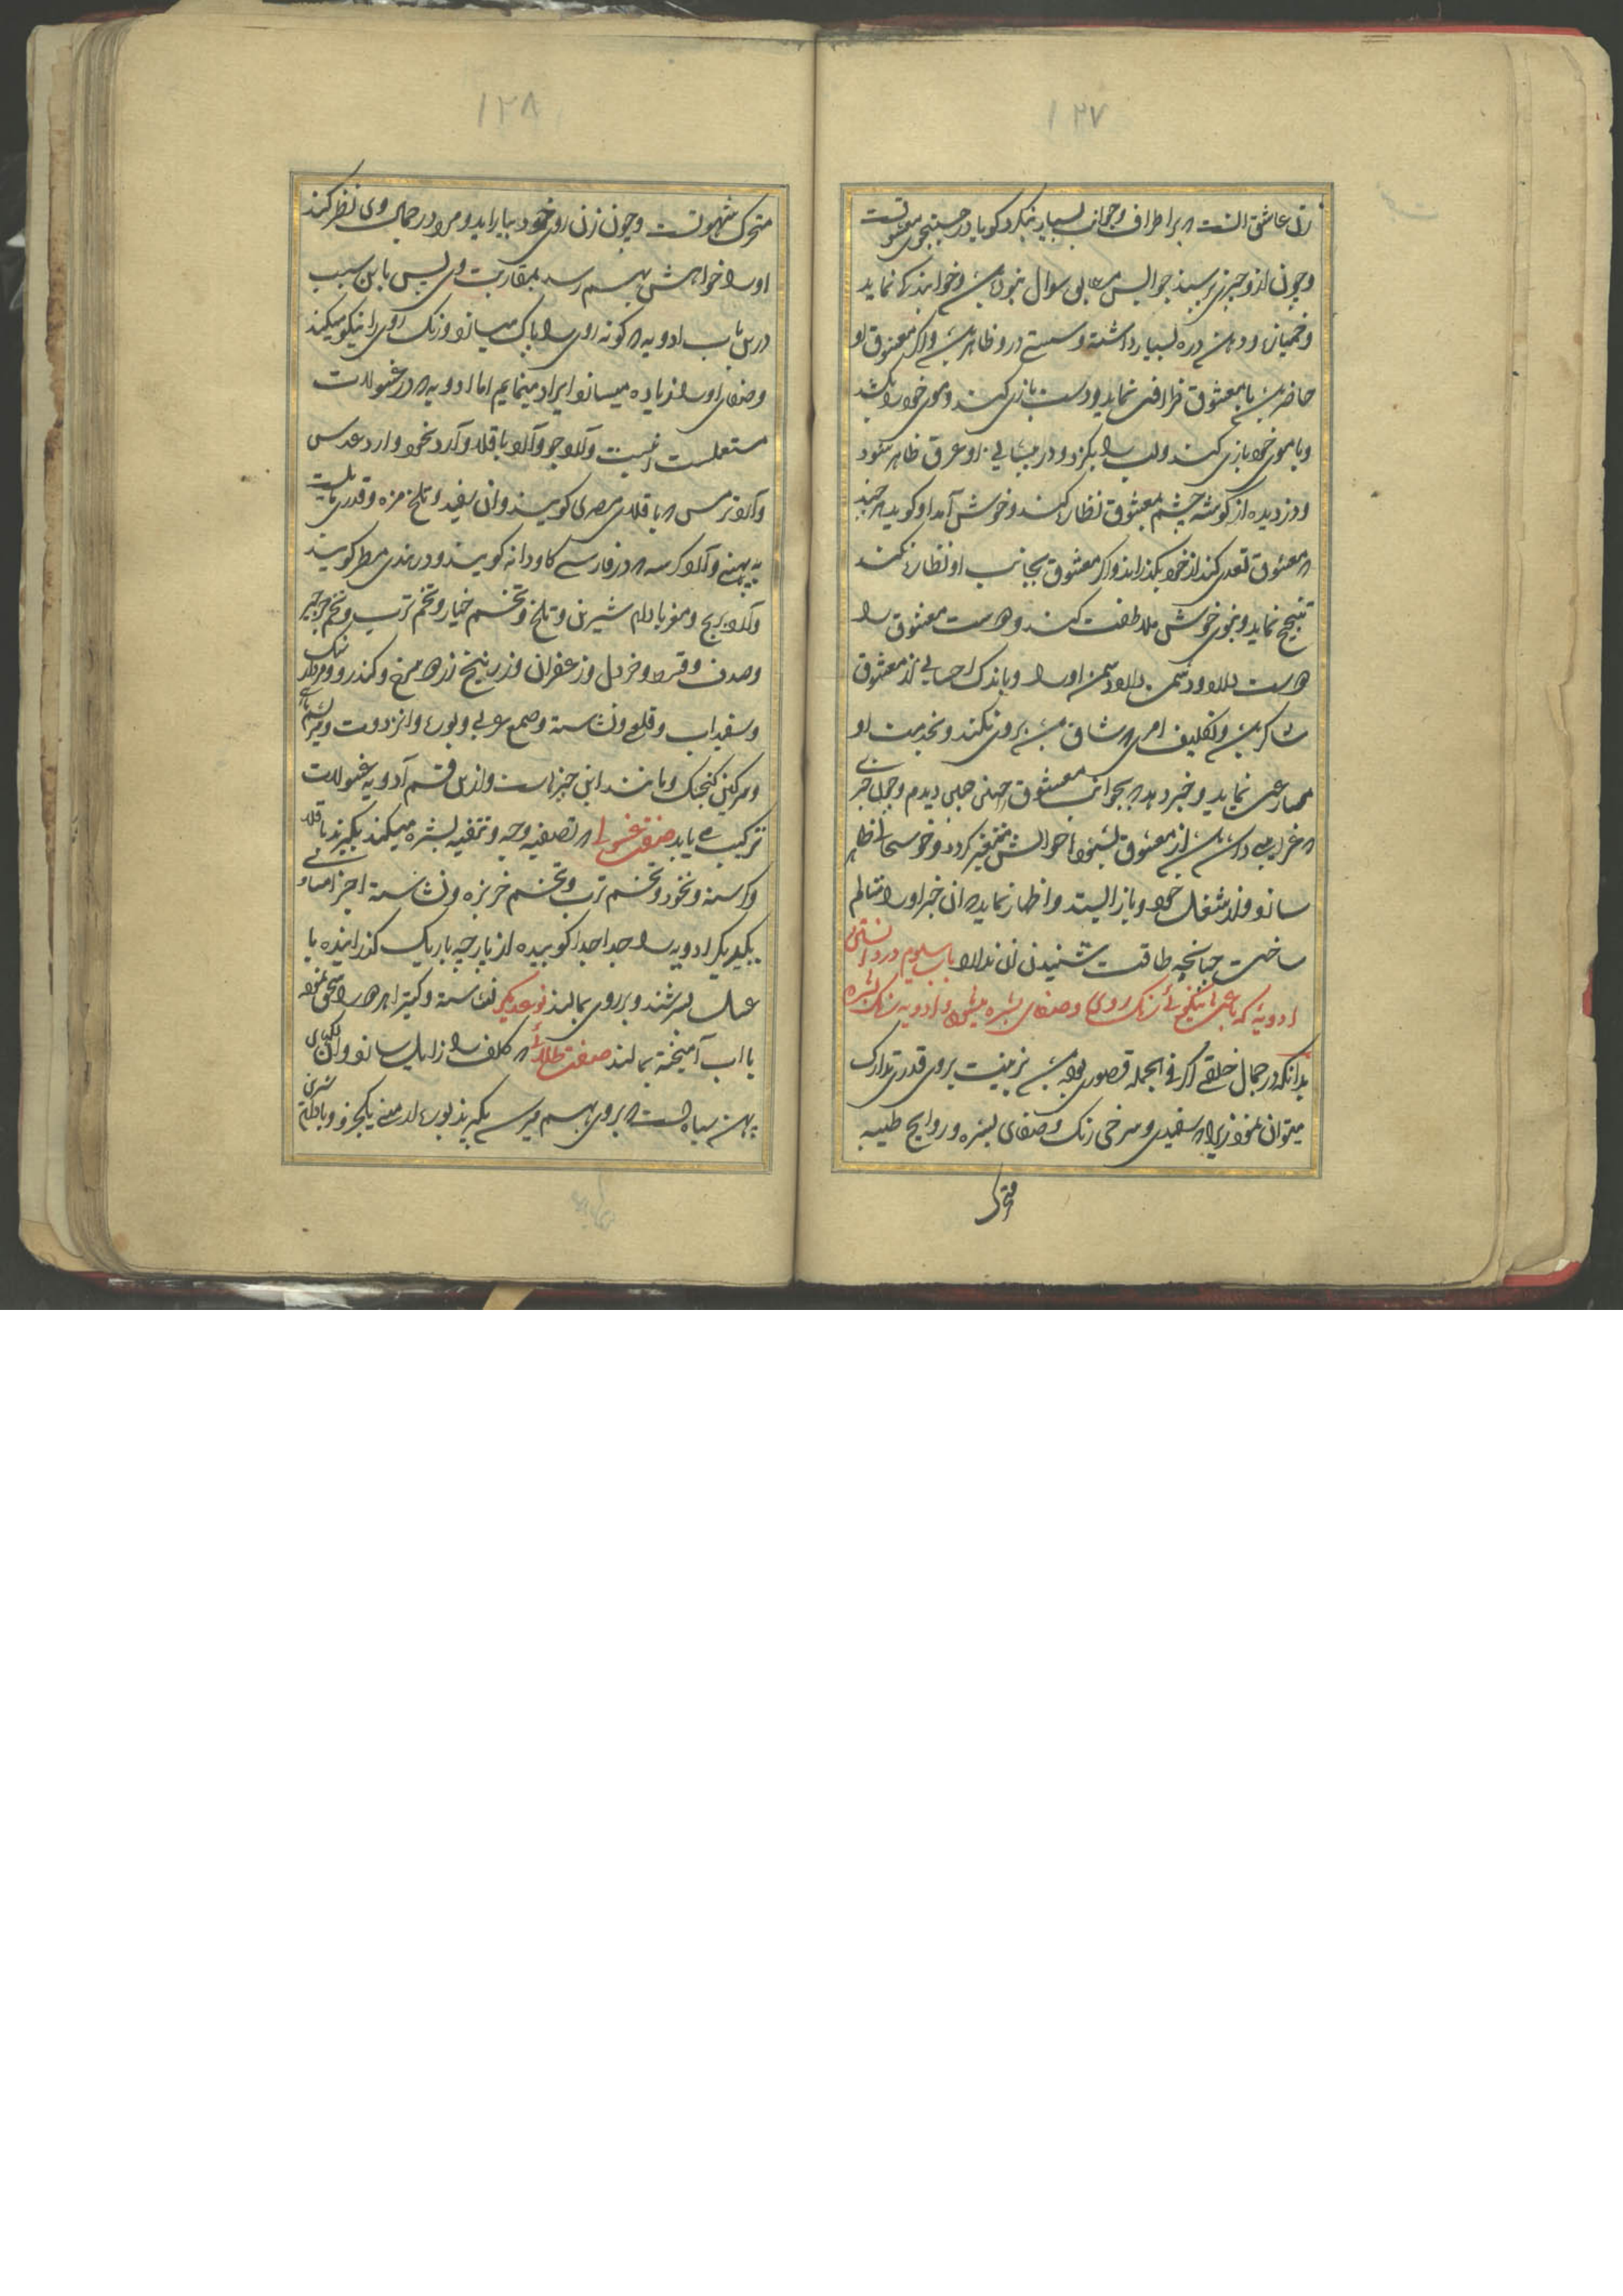 ۱۲۷
زن عاشق آنست که بر اطراف و جوانب بسیار نیکرد کویا در جستجوی معشوقست
و چون از و چیزی پرسند جوابش مطابق سوال نبوده باشد و خوابهای نماید
و خمیازه و دهن دره بسیار داشته و سستی در و ظاهر باشد و اکر معشوق او
حاضر باشد با معشوق ظرافتی نماید و دست بازی کند و موی خود را بکشد
و با موی خود بازی کند و لب را بکزد و در پیشانی او عرق ظاهر شود
و دزدیده از کوشه چشم بمعشوق نظاره کند و خوش آمد او کوید هر چند
که معشوق تعدی کند از خود بکذراند و اکر معشوق بجانب او نظاره نکند
تنحنح نماید و بخوی خوش ملاطفت کند و دوست معشوق را
دوست دارد و دشمن دارد دشمن او را و باندک احسانی از معشوق
شاکر باشد و تکلیف امری که شاق باشد بروی نکند و بخدمت او
مسارعت نماید و خبر دهد که بخواب معشوق را چنین چنین دیدم و چون خبری
که غرابتی داشته باشد از معشوق بشنود احوالش متغیر کردد و خوشحالی ظاهر
سازد و از شغل خود باز ایستد و اظهار نماید که آن خبر او را متالم
ساخت چنانچه طاقت شنیدن آن ندارد باب سیوم در دانستن
ادویهٔ که باعث نیکویی رنک روی و صفای بشره میشود و ادویه رنک بشره
بدانکه در جمال خلقی اکر فی الجمله قصوری بوده باشد بزینت بروی قدری تدارک
میتوان نمود زیرا که سفیدی و سرخی رنک و صفای بشره و روایح طیبه
محرک
۱۲۸
محرک شهوتست و چون زن روی خود بیاراید و مرد در جمال وی نظر کند
او را خواهش بهم رسد بمقاربت وی پس باین سبب
درین باب ادویه که کونه روی را پاک میسازد و رنک روی را نیکو میکند
و صفای او را زیاده میسازد ایراد مینمایم اما ادویه که در غسولات
مستعلست اینست و آرد جو و آرد باقلا و آرد نخود و ارد عدس
و آرد ترمس که باقلای مصری کویند و آن سفید و تلخ مزه و قدری مایلست
به پهنی و آرد کرسنه که در فارسی کاودانه کویند و در هندی مطر کویند
و آرد برنج و مغز بادام شیرین و تلخ و تخم خیار و تخم ترب و تخم جرجیر
و صدف و قسط و خردل و زعفران و زرنیخ زرد و مرغ و کندر و مردار سنک
و سفیداب و قلعی و نشاسته و صمغ عربی و بوره و انزروت
و سرکین کنجشک و مانند این چیزهاست و ازین قسم آدویه غسولات
ترکیب می یابد صفت غسولی که تصفیه وجه و تنقیه بشره میکند بکیرند باقلا
و کرسنه و نخود و تخم ترب و تخم خربزه و نشاسته اجزا مساوی
یکدیکر ادویه را جدا جدا کوبیده از پارچه باریک کذرانیده با
عسل بسرشند و بر روی بمالند نوعدیکر نشاسته و کتیرا هر دو را سحق نموده
با آب آمیخته بمالند صفت طلائی که کلف را زایل سازد و آن لکهای
پهن سیاه است که بر روی بهم میرسد بکیرند بوره ارمنی یکجزو و بادام شیرین